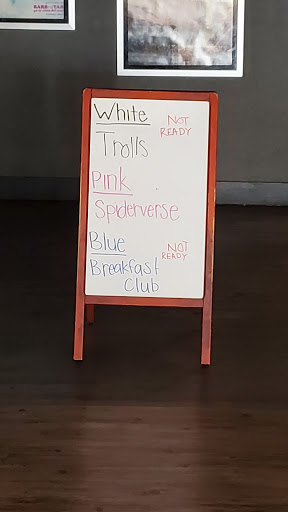 White
NOT
READY
Trolls
Pink
Spiderverse
Blue
NOT
READY
Breakfast
Club